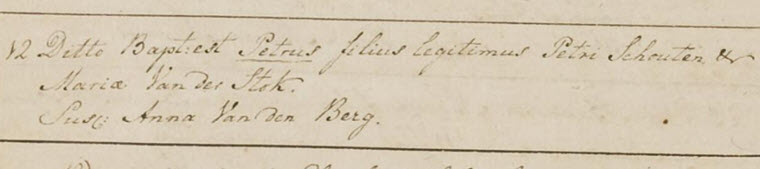 12 Ditto Bapt: est Petrus filius legitimus Petri Schouten &
Mariæ Van der Stok.
Susc: Anna Van den Berg.